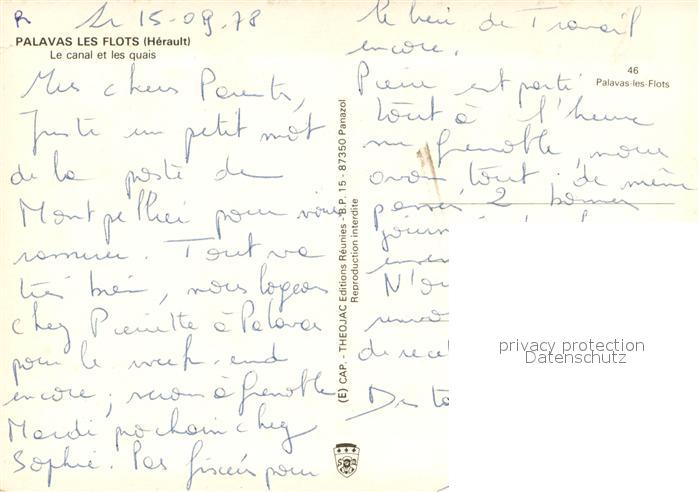 R Le 15-09-78
PALAVAS LES FLOTS (Hérault)
Le canal et les quais
Mes chers Parents,
Juste un petit mot
de la poste de
Montpellier pour vous
rassurer. Tout va
très bien, nous logeons
chez Pierrette à Palavas
pour le week-end
encore ; serons à Grenoble
Mardi prochain chez
Sophie. Pas pour
(E) CAP. - THEOJAC Editions Réunies - B.P. 15 - 87350 Panazol
Reproduction interdite
le lieu de Travail
encore.
46
Palavas-les-Flots
Pierre est parti
tout à l'heure
sur Grenoble, nous
avons tout de même
passé 2 bonnes
N'ou
de
Des
privacy protection
Datenschutz